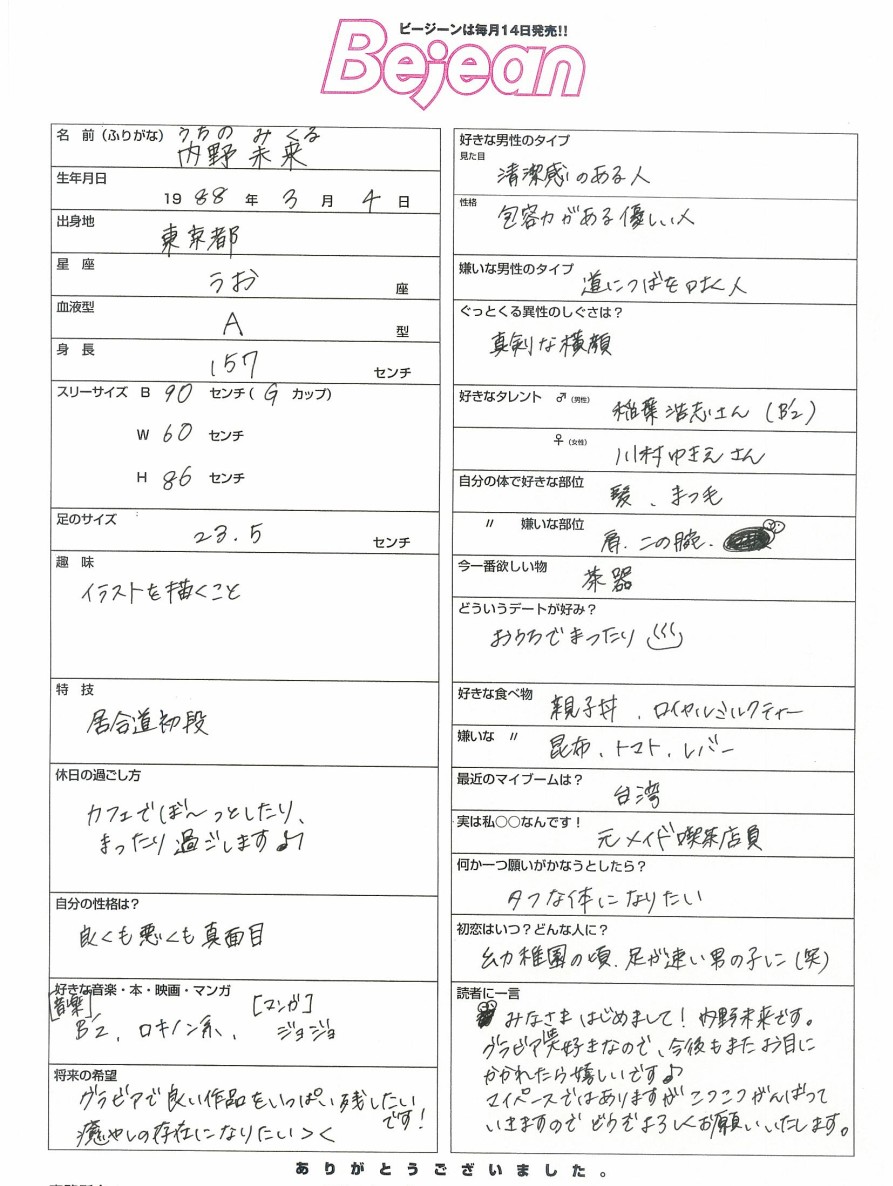 ビージーンは毎月14日発売!!
Bejean
名 前(ふりがな) うちの みくる
内野 未来
生年月日
1988年 3月 4日
出身地
東京都
星 座
うお 座
血液型
A 型
身 長
157 センチ
スリーサイズ B 90 センチ( G カップ)
W 60 センチ
H 86 センチ
足のサイズ
23.5 センチ
趣 味
イラストを描くこと
特 技
居合道初段
休日の過ごし方
カフェでぼ〜っとしたり、
まったり過ごします♪
自分の性格は?
良くも悪くも真面目
好きな音楽・本・映画・マンガ
[音楽] [マンガ]
B'z、ロキノン系、 ジョジョ
将来の希望
グラビアで良い作品をいっぱい残したい
です!
癒やしの存在になりたい><
好きな男性のタイプ
見た目
清潔感のある人
性格
包容力がある優しい人
嫌いな男性のタイプ
道につばをはく人
ぐっとくる異性のしぐさは?
真剣な横顔
好きなタレント ♂(男性) 稲葉浩志さん(B'z)
♀(女性) 川村ゆきえさん
自分の体で好きな部位
髪、まつ毛
〃 嫌いな部位
肩、二の腕、
今一番欲しい物
茶器
どういうデートが好み?
おうちでまったり
好きな食べ物
親子丼、ロイヤルミルクティー
嫌いな 〃
昆布、トマト、レバー
最近のマイブームは?
台湾
実は私○○なんです!
元メイド喫茶店員
何か一つ願いがかなうとしたら?
タフな体になりたい
初恋はいつ?どんな人に?
幼稚園の頃、足が速い男の子に(笑)
読者に一言
みなさまはじめまして!内野未来です。
グラビア大好きなので、今後もまたお目に
かかれたら嬉しいです♪
マイペースではありますがコツコツがんばって
いきますのでどうぞよろしくお願いいたします。
ありがとうございました。